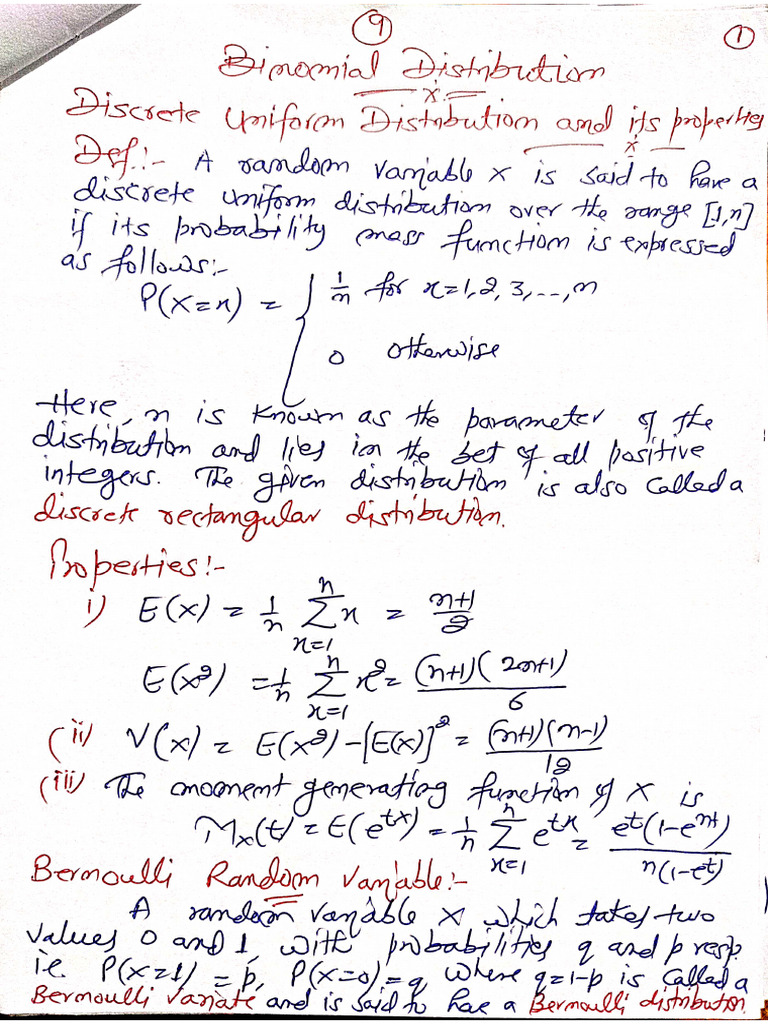 9
1
Binomial Distribution
x
Discrete Uniform Distribution and its properties
x
Def:- A random variable X is said to have a
discrete uniform distribution over the range [1,n]
if its probability mass function is expressed
as follows:-
P(X=x) = { 1/n for x=1,2,3,...,n
0 otherwise
Here, n is known as the parameter of the
distribution and lies in the set of all positive
integers. The given distribution is also called a
discrete rectangular distribution.
Properties:-
i) E(X) = 1/n ∑_{x=1}^{n} x = (n+1)/2
E(X²) = 1/n ∑_{x=1}^{n} x² = (n+1)(2n+1)/6
(ii) V(X) = E(X²) - [E(X)]² = (n+1)(n-1)/12
(iii) The moment generating function of X is
M_X(t) = E(e^{tx}) = 1/n ∑_{x=1}^{n} e^{tx} = e^t(1-e^{nt})/n(1-e^t)
Bernoulli Random Variable:-
A random variable X which takes two
values 0 and 1, with probabilities q and p resp.
i.e. P(X=1) = p, P(X=0) = q where q=1-p is called a
Bernoulli variate and is said to have a Bernoulli distribution.